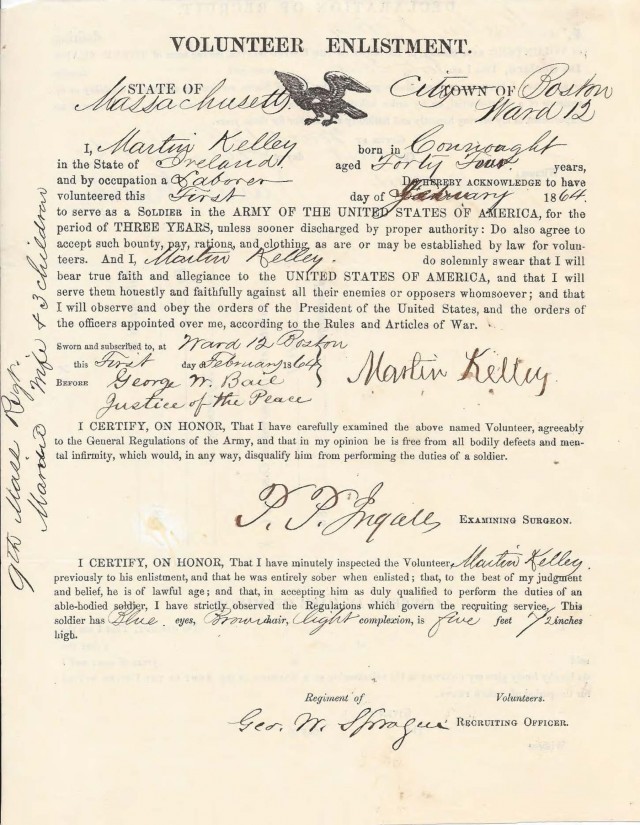 VOLUNTEER ENLISTMENT.
STATE OF City TOWN OF Boston
Massachusetts Ward 12
I, Martin Kelley born in Connought
in the State of Ireland aged Forty Four years,
and by occupation a Laborer DO HEREBY ACKNOWLEDGE to have
volunteered this First day of February 1864.
to serve as a SOLDIER in the ARMY OF THE UNITED STATES OF AMERICA, for the
period of THREE YEARS, unless sooner discharged by proper authority: Do also agree to
accept such bounty, pay, rations, and clothing, as are or may be established by law for volun-
teers. And I, Martin Kelley. do solemnly swear that I will
bear true faith and allegiance to the UNITED STATES OF AMERICA, and that I will
serve them honestly and faithfully against all their enemies or opposers whomsoever; and that
I will observe and obey the orders of the President of the United States, and the orders of
the officers appointed over me, according to the Rules and Articles of War.
Sworn and subscribed to, at Ward 12 Boston
this First day of February 1864
BEFORE George W. Bail
Justice of the Peace
Martin Kelley
I CERTIFY, ON HONOR, That I have carefully examined the above named Volunteer, agreeably
to the General Regulations of the Army, and that in my opinion he is free from all bodily defects and men-
tal infirmity, which would, in any way, disqualify him from performing the duties of a soldier.
P. P. Ingalls EXAMINING SURGEON.
I CERTIFY, ON HONOR, That I have minutely inspected the Volunteer, Martin Kelley.
previously to his enlistment, and that he was entirely sober when enlisted; that, to the best of my judgment
and belief, he is of lawful age; and that, in accepting him as duly qualified to perform the duties of an
able-bodied soldier, I have strictly observed the Regulations which govern the recruiting service. This
soldier has Blue eyes, Brown hair, light complexion, is five feet 7 1/2 inches
high.
Regiment of Volunteers.
Geo. W. Sprague RECRUITING OFFICER.
9th Mass Regt.
Married Wife & 3 children